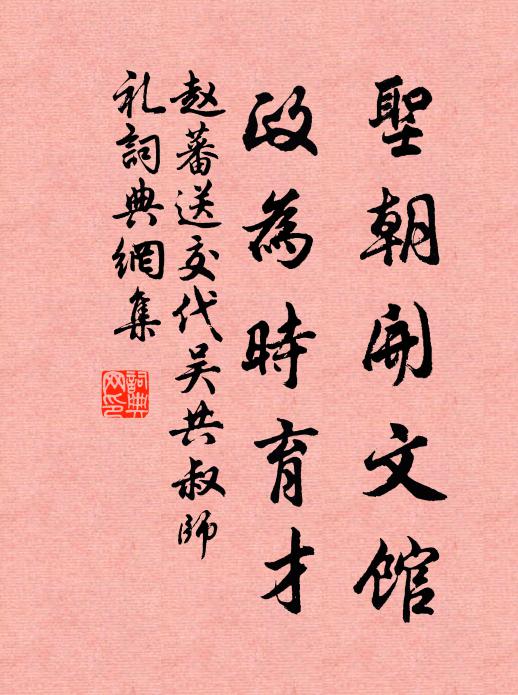 聖朝開文館
政為時育才
赵蕃送交代吴共叔師
礼詞典網集
詞典网印